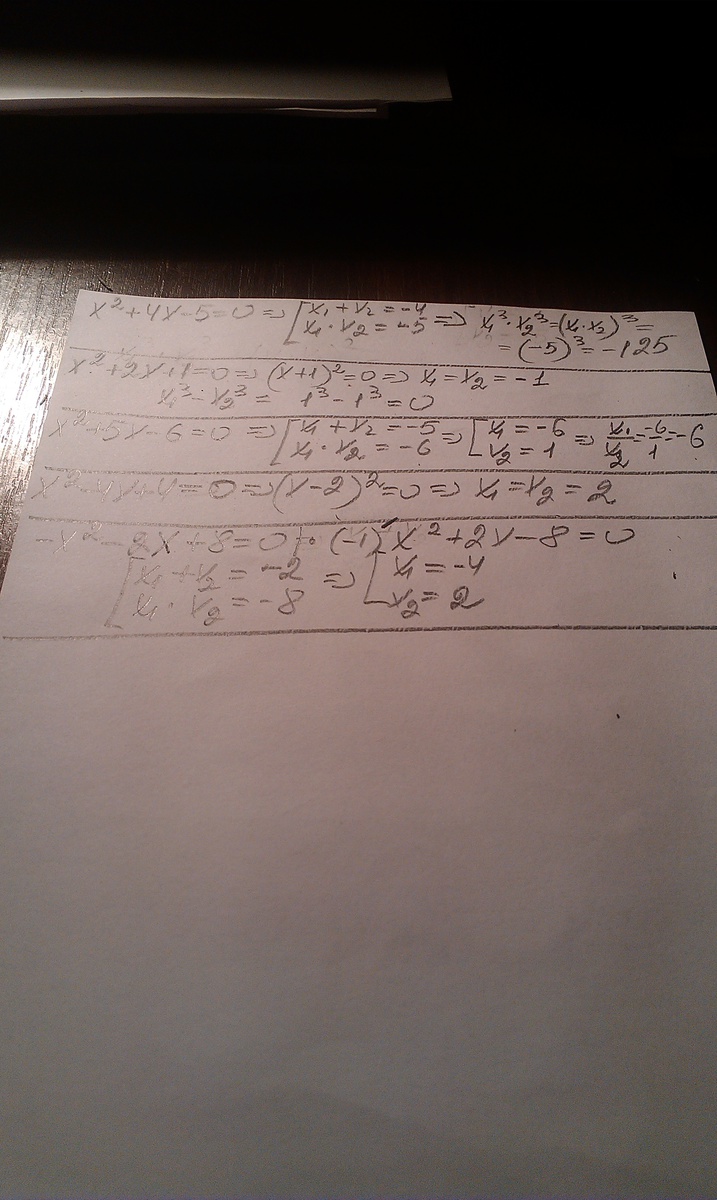 x² + 4x - 5 = 0 => [ x₁ + x₂ = -4 => x₁³ · x₂³ = (x₁ · x₂)³ =
x₁ · x₂ = -5 = (-5)³ = -125
x² + 2x + 1 = 0 => (x+1)² = 0 => x₁ = x₂ = -1
x₁³ - x₂³ = 1³ - 1³ = 0
x² + 5x - 6 = 0 => [ x₁ + x₂ = -5 => [ x₁ = -6 => x₁/x₂ = -6/1 = -6
x₁ · x₂ = -6 x₂ = 1
x² - 4x + 4 = 0 => (x-2)² = 0 => x₁ = x₂ = 2
-x² - 2x + 8 = 0 | · (-1) x² + 2x - 8 = 0
[ x₁ + x₂ = -2 => [ x₁ = -4
x₁ · x₂ = -8 x₂ = 2